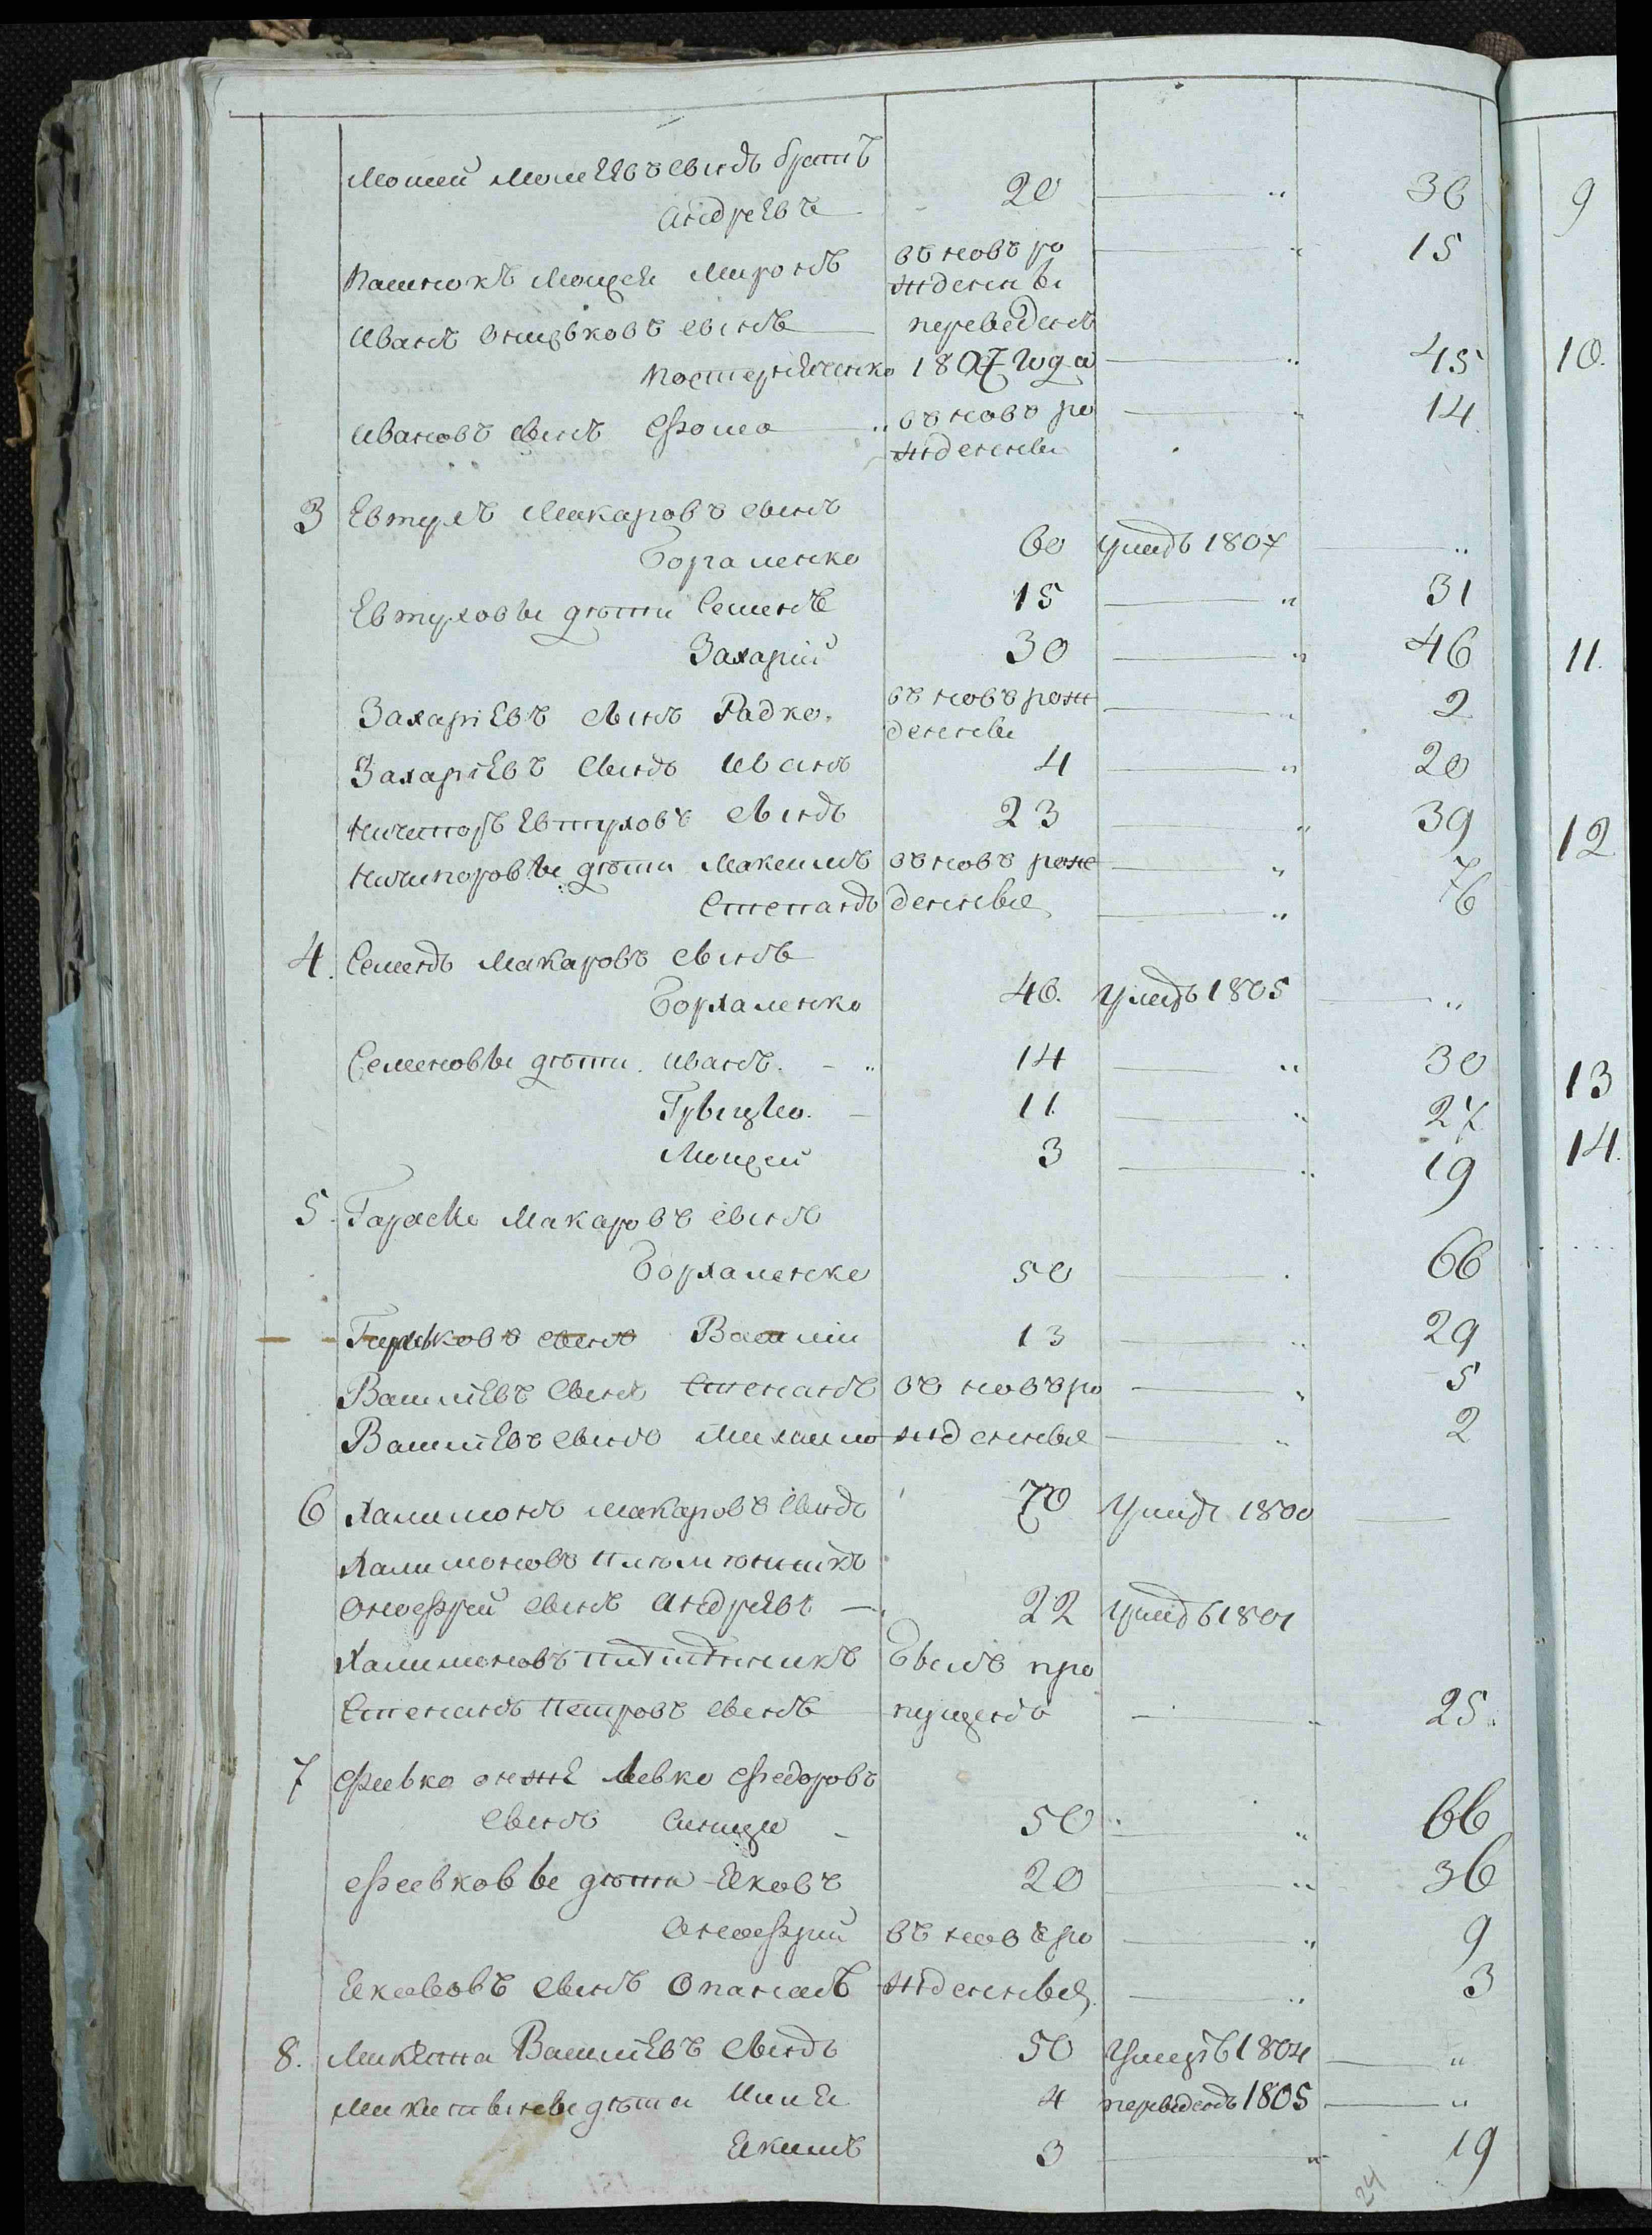 Мосѣевъ сынъ братъ
Андреевъ 20 — " 36
Мойсей Миронъ въ новъ ро — " 15
жденны
Иванъ Онищковъ сынъ — переведенъ
1807 года — " 45
Ивановъ сынъ Фома — " въ новъ ро — " 14
жденны
3 Евтухъ Макаровъ сынъ
Борхаленко 60 умеръ 1807 — "
Евтуховы дѣти Семенъ 15 — " 31
Захарій 30 — " 46
Захаріевъ сынъ Радко. въ новъ рож — " 2
денны
Захаріевъ сынъ Иванъ 4 — " 20
Ничипоръ Евтуховъ сынъ 23 — " 39
Ничипоровы дѣти Максимъ въ новъ рож — " 7
Степанъ денныя — " 6
4. Семенъ Макаровъ сынъ
Борхаленко 46. умеръ 1805 — "
Семеновы дѣти. Иванъ. - " 14 — " 30
Грыцко. — 11. — " 27
Мойсей 3 — " 19
5. Гараско Макаровъ сынъ
Борхаленко 50 — 66
сынъ Василій 13 — " 29
Василіевъ сынъ Степанъ въ новъ ро — " 5
Василіевъ сынъ Михайло жденныя — " 2
6 Халимонъ Макаровъ сынъ 70 умеръ 1800 —
Халимоновъ племянникъ
Онофрій сынъ Андреевъ — 22 умеръ 1801
Халимоновъ былъ про
Степанъ Петровъ сынъ пущенъ — " 25.
7 Филко онже Левко Федоровъ
сынъ 50 — " 66
дѣти Яковъ 20 — " 36
Онофрій въ новъ ро — " 9
Яковлевъ сынъ Опанасъ жденныя. — " 3
8. Микита Василіевъ сынъ 50 умеръ 1804 — "
дѣти Илья 4 переведенъ 1805 — "
Якимъ 3 — " 19
24
9
10.
11.
12
13
14.